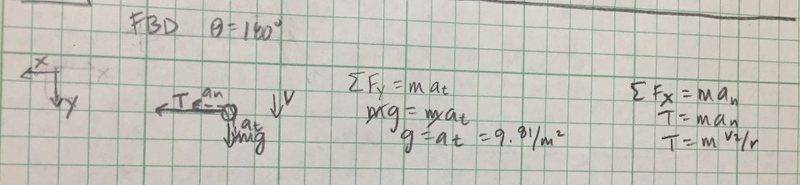 FBD θ=180°
X
Y
T an
V
at
mg
ΣFy = m at
mg = m at
g = at = 9.81/m²
ΣFx = m an
T = m an
T = m v²/r